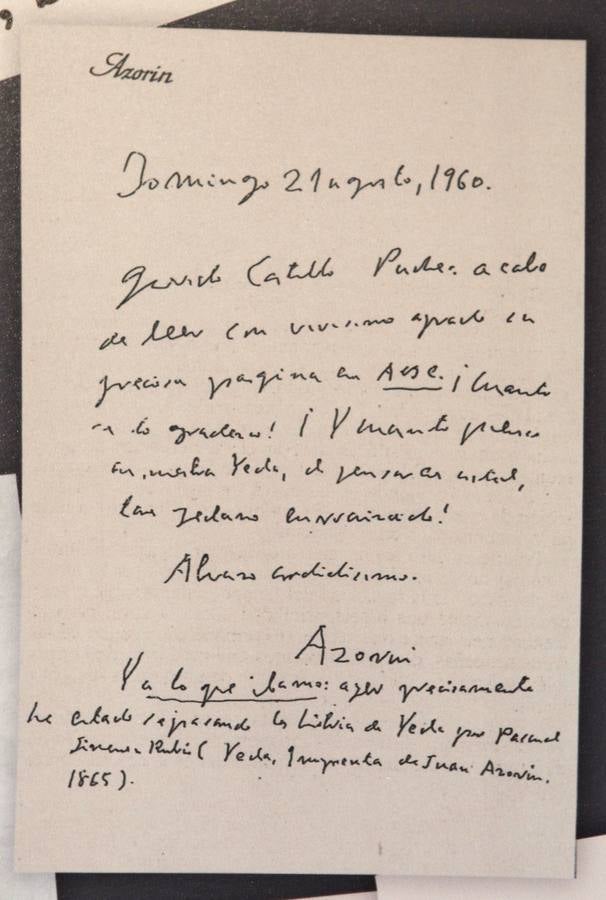 Azorín
Domingo 21 agosto, 1960.
Querido Castillo Puche: acabo
de leer con vivísimo agrado su
preciosa página en ABC. ¡Cuanto
se lo agradezco! ¡Y cuanto pienso
en nuestra Yecla, al pensar en usted,
tan yeclano
Abrazo cordialísimo.
Azorín
Ya lo que íbamos: ayer precisamente
he estado repasando la historia de Yecla por Pascual
Jiménez Rubio (Yecla, Imprenta de Juan Azorín.
1865).